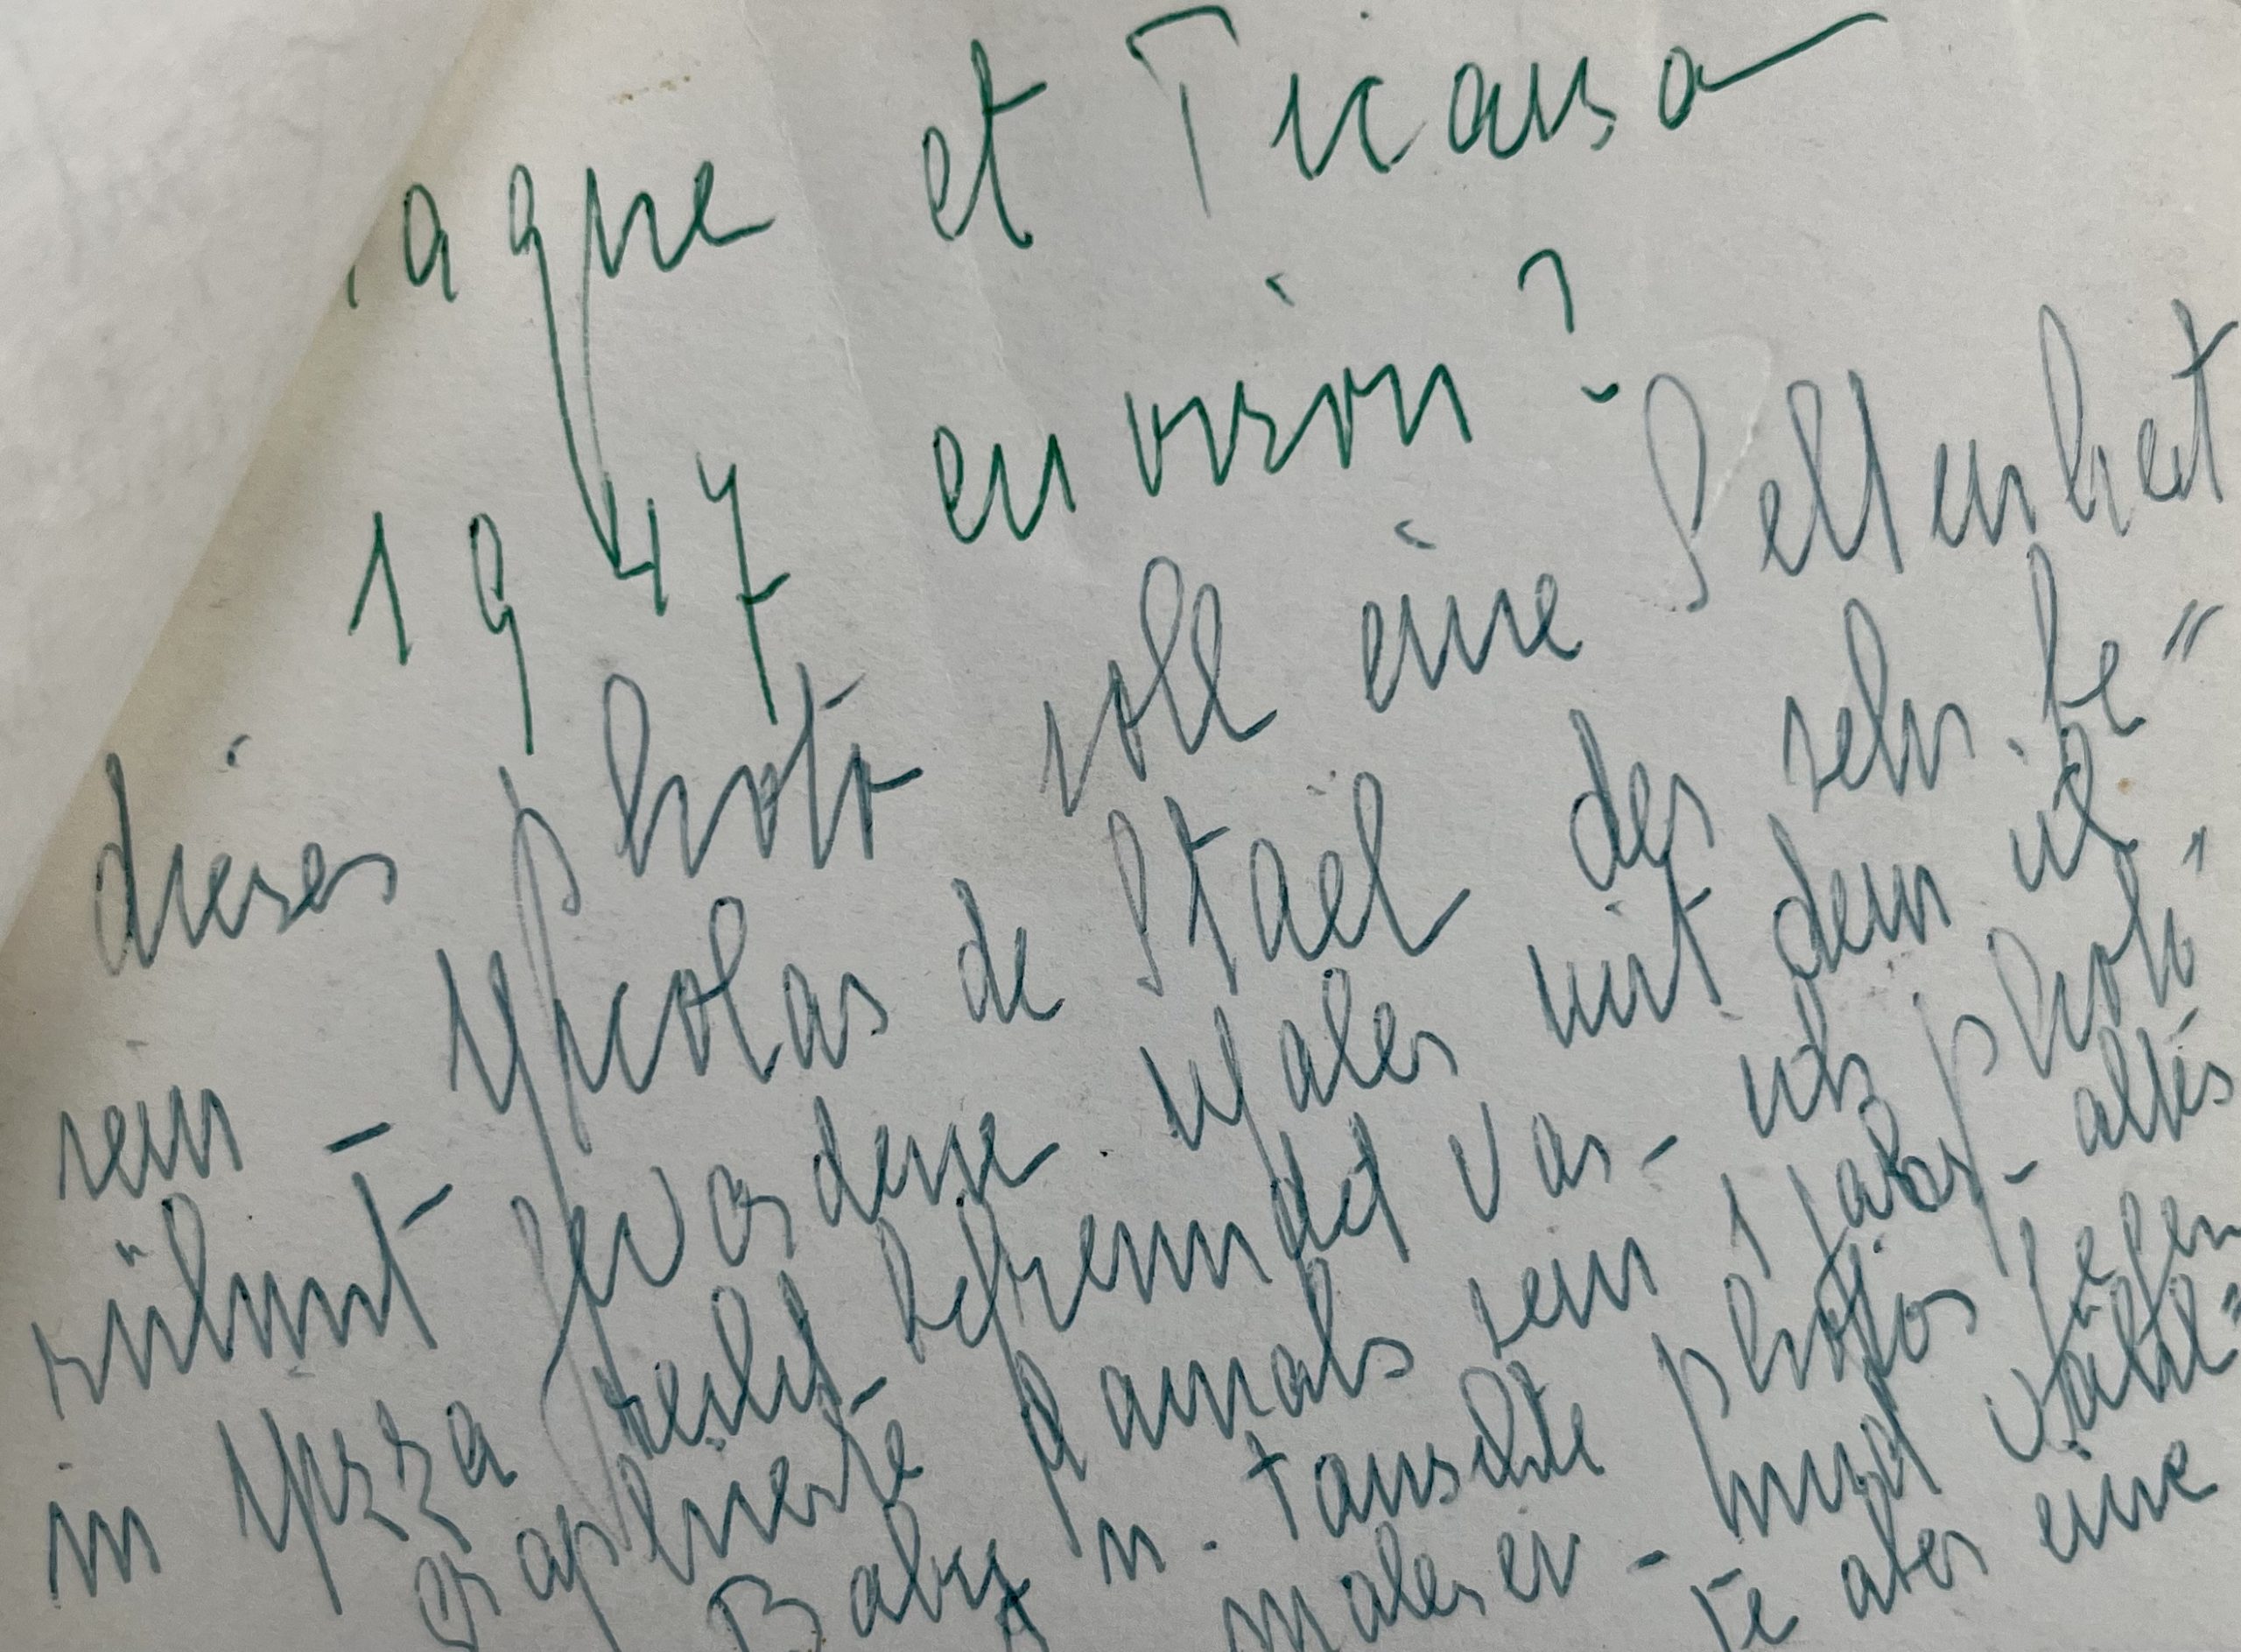 aque et Picasso
1947 environ?
dieses photo soll eine Seltenheit
sein – Nicolas de Staël der sehr be"
rühmt gewordene Maler mit dem ich
in Nizza befreundet war – ich photo"
graphierte damals sein 1 jähr. altes
Baby u. tauschte photos gegen
malerei – und wähl"
te aber eine